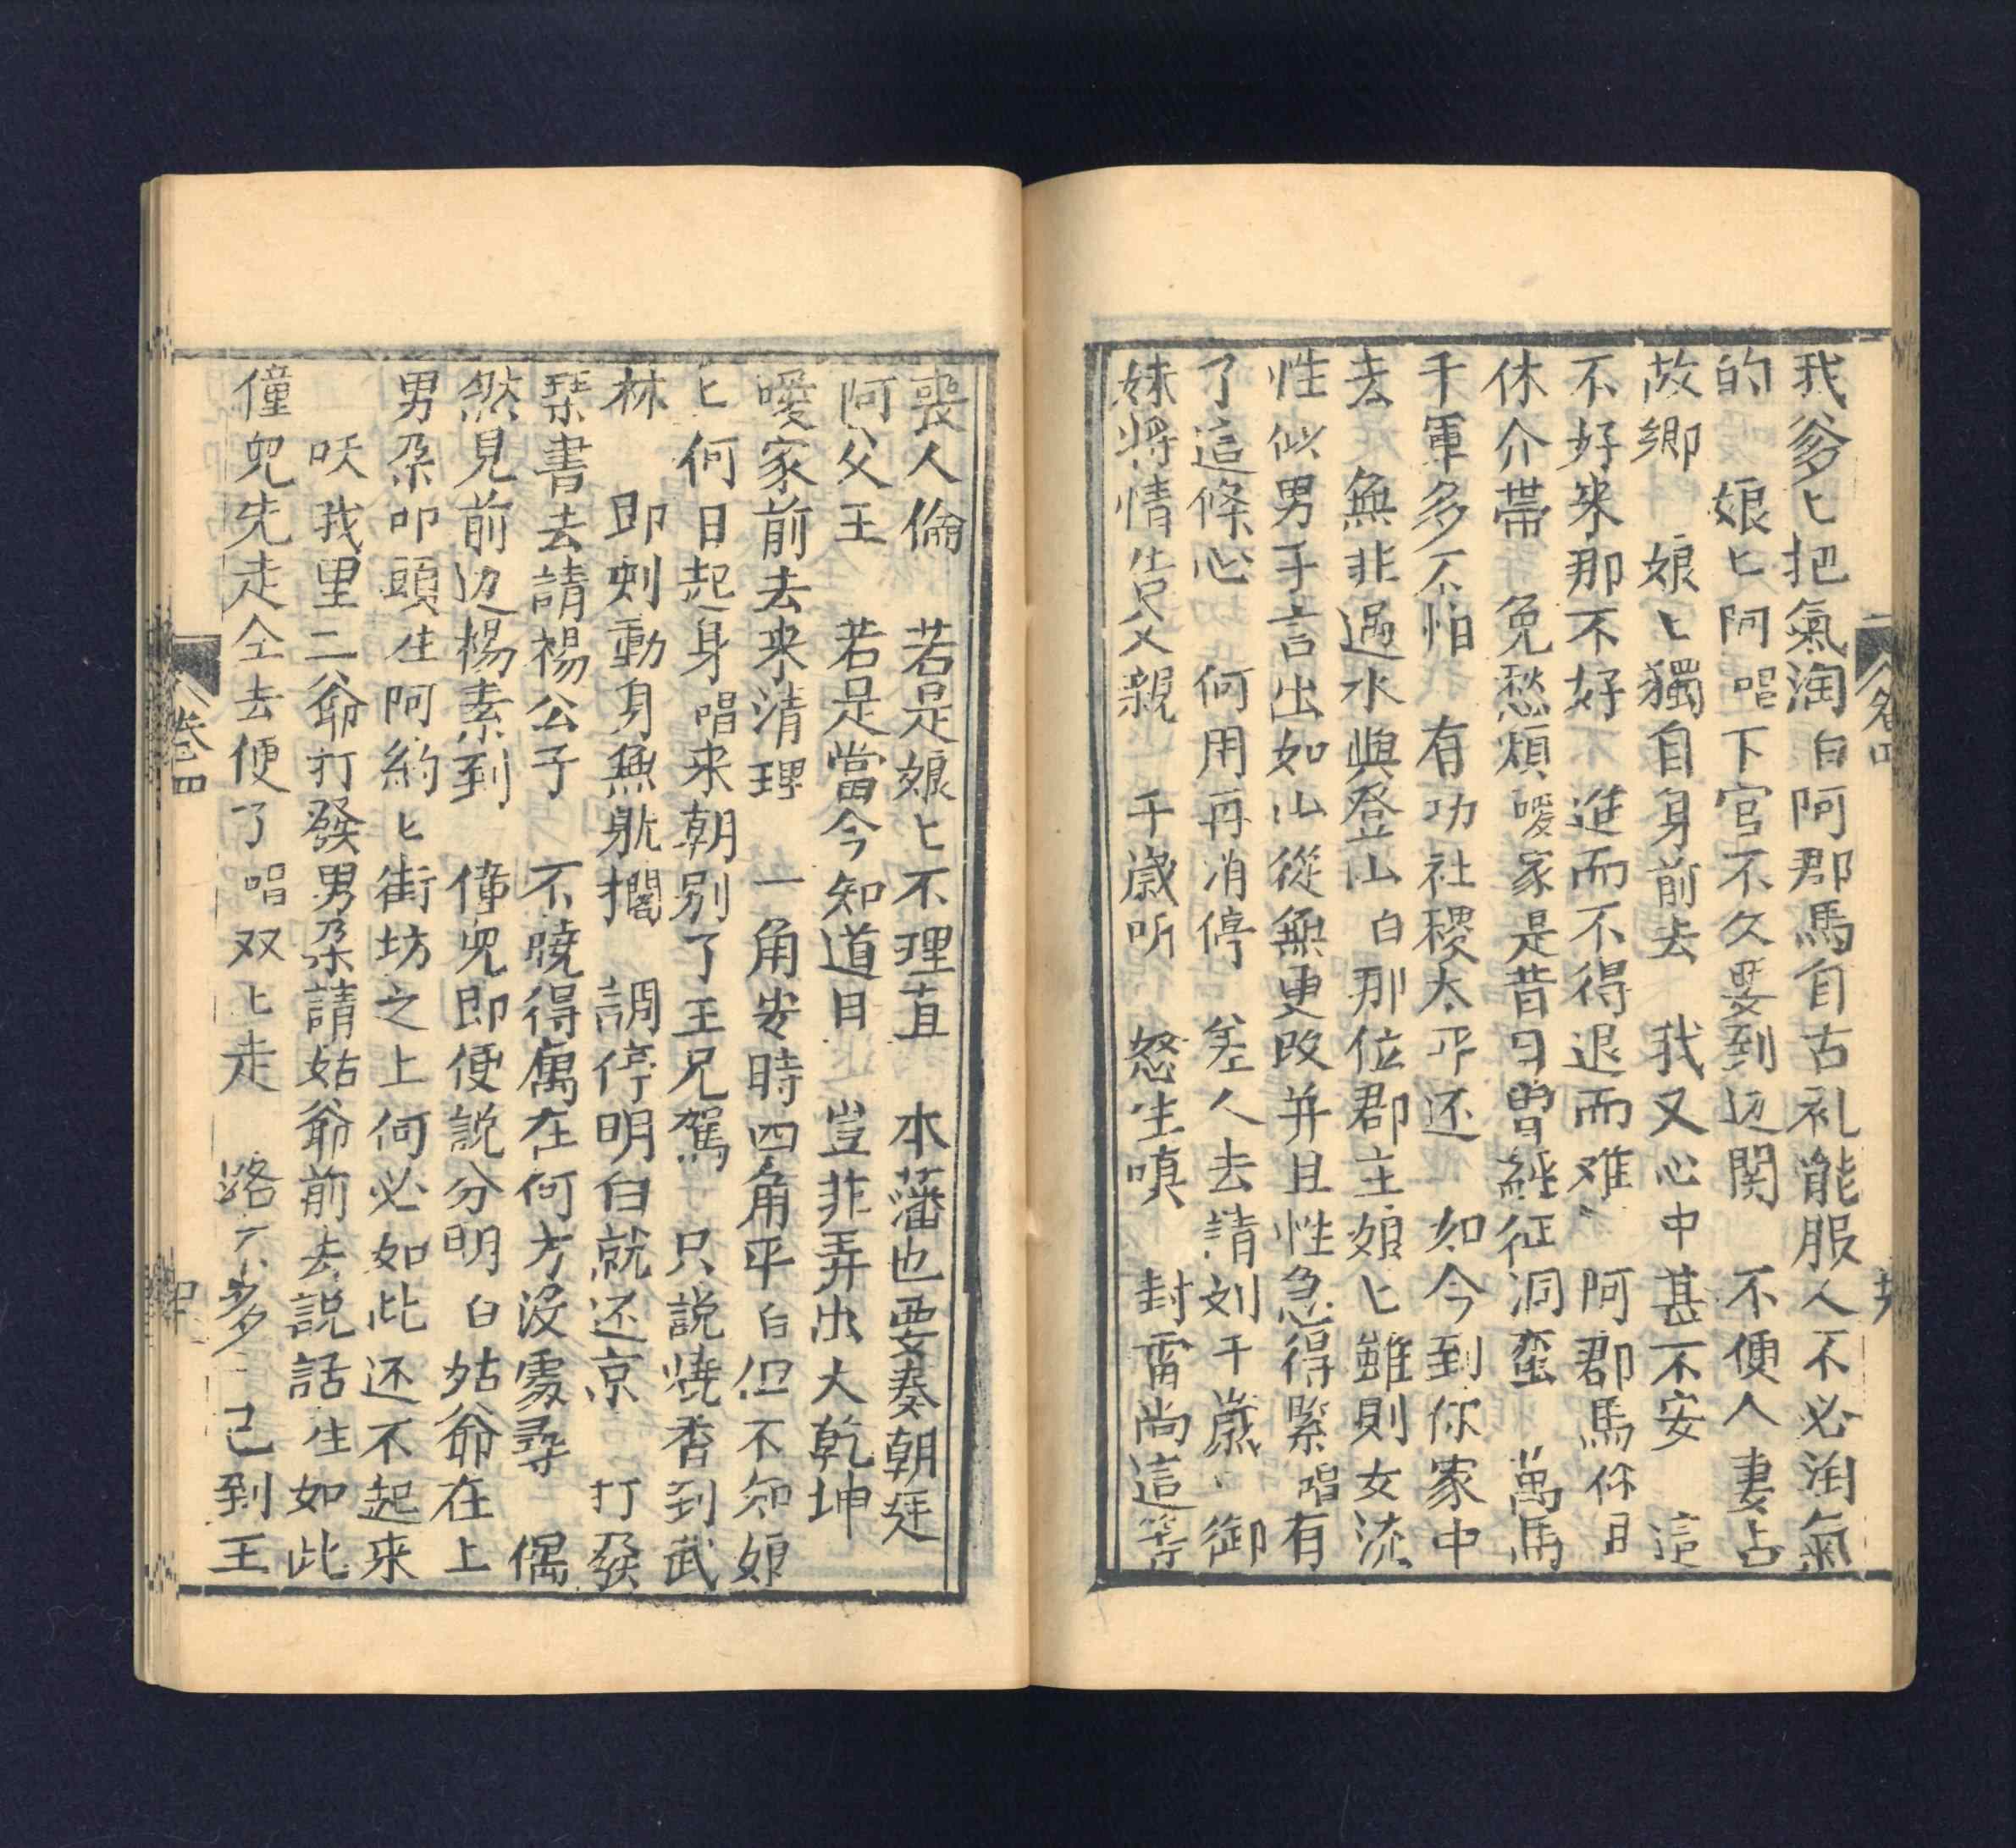 我爹匕把氣淘白阿郡馬自古礼能服人不必淘氣
的　娘匕阿唱下官不久要到边関　不便人妻占
故鄉　娘匕獨自身前去　我又心中甚不安　這
不好来那不好　進而不得退而难　阿郡馬你且
休介帶　免愁煩噯家是昔日曾經征洞蛮　萬馬
千軍多不怕　有功社稷太平还　如今到你家中
去　無非過水與登山白那位郡主娘匕雖則女流
性似男子言出如山從無更改并且性急得緊唱有
了這條心　何用再消停　差人去請刘千歲　御
妹將情告父親　千歲听　怒生嗔　封雷尚這等
喪人倫　若是娘匕不理直　本藩也要奏朝廷
阿父王　若是當今知道日　豈非弄出大乾坤
噯家前去来清理　一角安時四角平白但不知娘
匕何日起身唱来朝别了王兄駕　只説燒香到武
林　即刻動身無躭擱　調停明白就还京　打發
琹書去請楊公子　不曉得寓在何方没處尋　偶
然見前边楊素到　僮児即便説分明白姑爺在上
男朶叩頭生阿約匕街坊之上何必如此还不起来
咲我里二爺打發男朶請姑爺前去説話生如此
僮兒先走仝去便了唱双匕走　路不多　已到王
卷四